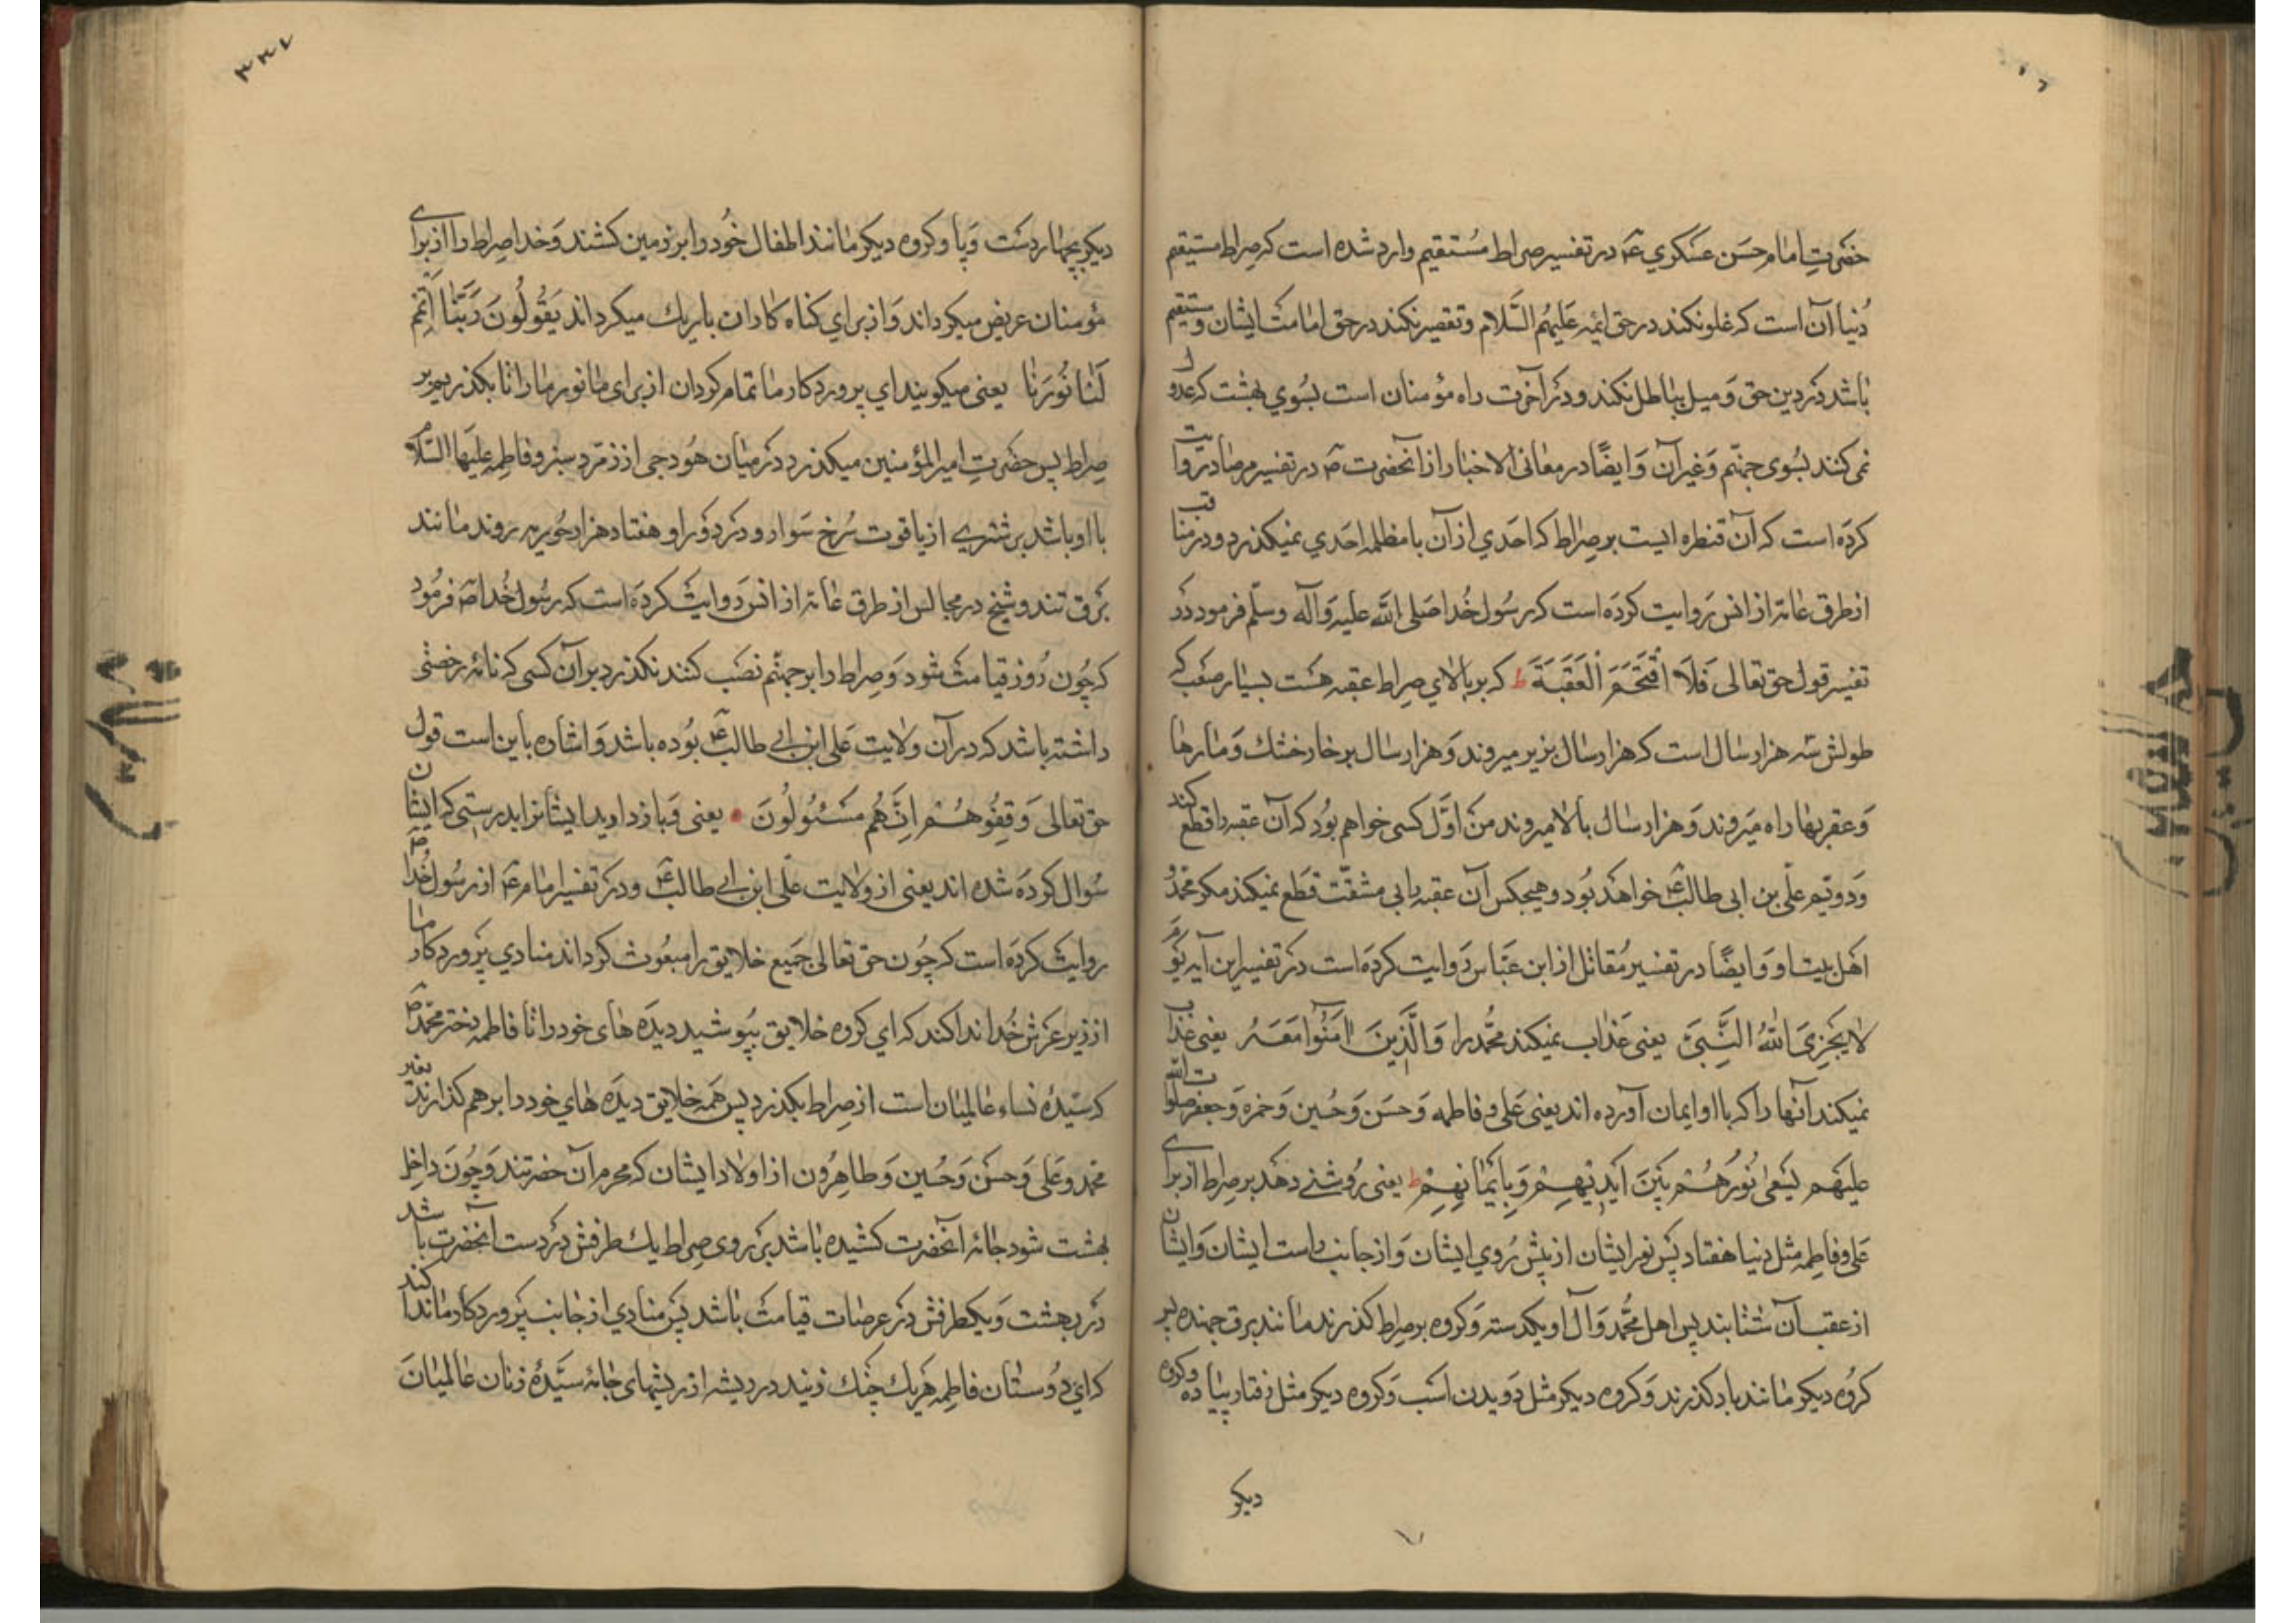 حضرت امام حسن عسکري ع در تفسیر صراط مستقیم وارد شده است که صراط مستیقم
دنیا آن است که غلو نکند در حق ائمه علیهم السلام و تقصیر نکند در حق امامت ایشان و مستقیم
باشد در دین حق و میل بباطل نکند و در آخرت راه مؤمنان است بسوي بهشت که عدول
نمی کنند بسوی جهنم و غیر آن و ایضًا در معانی الاخبار از آنحضرت ص در تفسیر مرصاد روایت
کرده است که آن قنطره ایست بر صراط که احدي از آن با مظلمه احدي نمیکذرد و در مناقب
از طرق عامه از انس روایت کرده است که رسول خدا صلی الله علیه وآله وسلم فرمود در
تفسیر قول حق تعالی فَلَا اقْتَحَمَ الْعَقَبَةَ ط که بر بالاي صراط عقبه هست بسیار صعب که
طولش سه هزار سال است که هزار سال بزیر میروند و هزار سال بر خار خشك و مارها
و عقربها راه میروند و هزار سال بالا میروند من اوّل کسی خواهم بود که آن عقبه را قطع کند
و دویّم علّي بن ابی طالب ع خواهد بود و هیچکس آن عقبه را بی مشقّت قطع نمیکند مکر محمّد و
اهل بیت او و ایضًا در تفسیر مُقاتل از ابن عبّاس روایت کرده است در تفسیر این آیه یَوْمَ
لا یُخْزِی اللهُ النَّبِیَّ یعنی عذاب نمیکند محمّد را وَالَّذِینَ امَنُوا مَعَهُ یعنی عذاب
نمیکند آنها را که با او ایمان آورده اند یعنی علی و فاطمه و حسن و حسین و حمزه و جعفر صلوات الله
علیهم یَسْعی نُورُهُمْ بَیْنَ اَیْدِیْهِمْ وَبِاَیْمَانِهِمْ ط یعنی رُوشنے دهد بر صراط از براے
علی و فاطمه مثل دنیا هفتاد پس نور ایشان از پیش رُوي ایشان و از جانب راست ایشان و ایشان
از عقب آن شتابند پس اهل محمّد و آل او یکدسته و کروه بر صراط کذرند مانند برق جهنده پس
کروه دیکر مانند باد کذرند و کروه دیکر مثل دویدن اسب و کروه دیکر مثل رفتار پیاده و کروه
دیکر
۳۳۷
دیکر بچهار دست و پا و کروه دیکر مانند اطفال خود را بر زمین کشند و خدا صراط را از براے
مؤمنان عریض میکرداند و از براي کناه کاران باریك میکرداند یَقُولُونَ رَبَّنَا اَتْمِمْ
لَنَا نُورَنَا یعنی میکویند اي پروردکار ما تمام کردان از برای ما نور ما را تا بکذریم بر
صراط پس حضرت امیر المؤمنین میکذرد در میان هودجی از زمرد سبز و فاطمه علیها السّلام
با او باشد بر شتري از یاقوت سرخ سوار و در دور او هفتاد هزار حوریه روند مانند
برق تند و شیخ در مجالس از طرق عامه از انس روایت کرده است که رسول خدا ص فرمود
که چون روز قیامت شود و صراط را بر جهنّم نصب کنند نکذرد بر آن کسی که نامه رخصتی
داشته باشد که در آن ولایت علی ابن ابی طالب ع بوده باشد و اشاره باین است قول
حق تعالی وَقِفُوهُمْ اِنَّهُمْ مَسْئُولُونَ • یعنی و باز دارید ایشانرا بدرستی که ایشان
سُوال کرده شده اند یعنی از ولایت علّی ابن ابی طالب ع و در تفسیر امام ع از رسول خدا ص
روایت کرده است که چون حق تعالی جمیع خلایق را مبعوث کرداند منادي پروردکار ما
از زیر عرش خدا ندا کند که اي کروه خلایق بپوشید دیده های خود را تا فاطمه دختر محمّد ص
که سیّدهٔ نساء عالمیان است از صراط بکذرد پس همه خلایق دیده هاي خود را بر هم کذارند بغیر
محمد و علی و حسن و حسین و طاهرون از اولاد ایشان که محرم آن حضرتند و چون داخل
بهشت شود جامه آنحضرت کشیده باشد بر روی صراط یك طرفش در دست آنحضرت باشد
در بهشت و یکطرفش در عرصات قیامت باشد پس منادي از جانب پروردکار ما ندا کند
که اي دوستان فاطمه هر یك چنك زنید در ریشه از ریشهای جامه سیّدهٔ زنان عالمیان